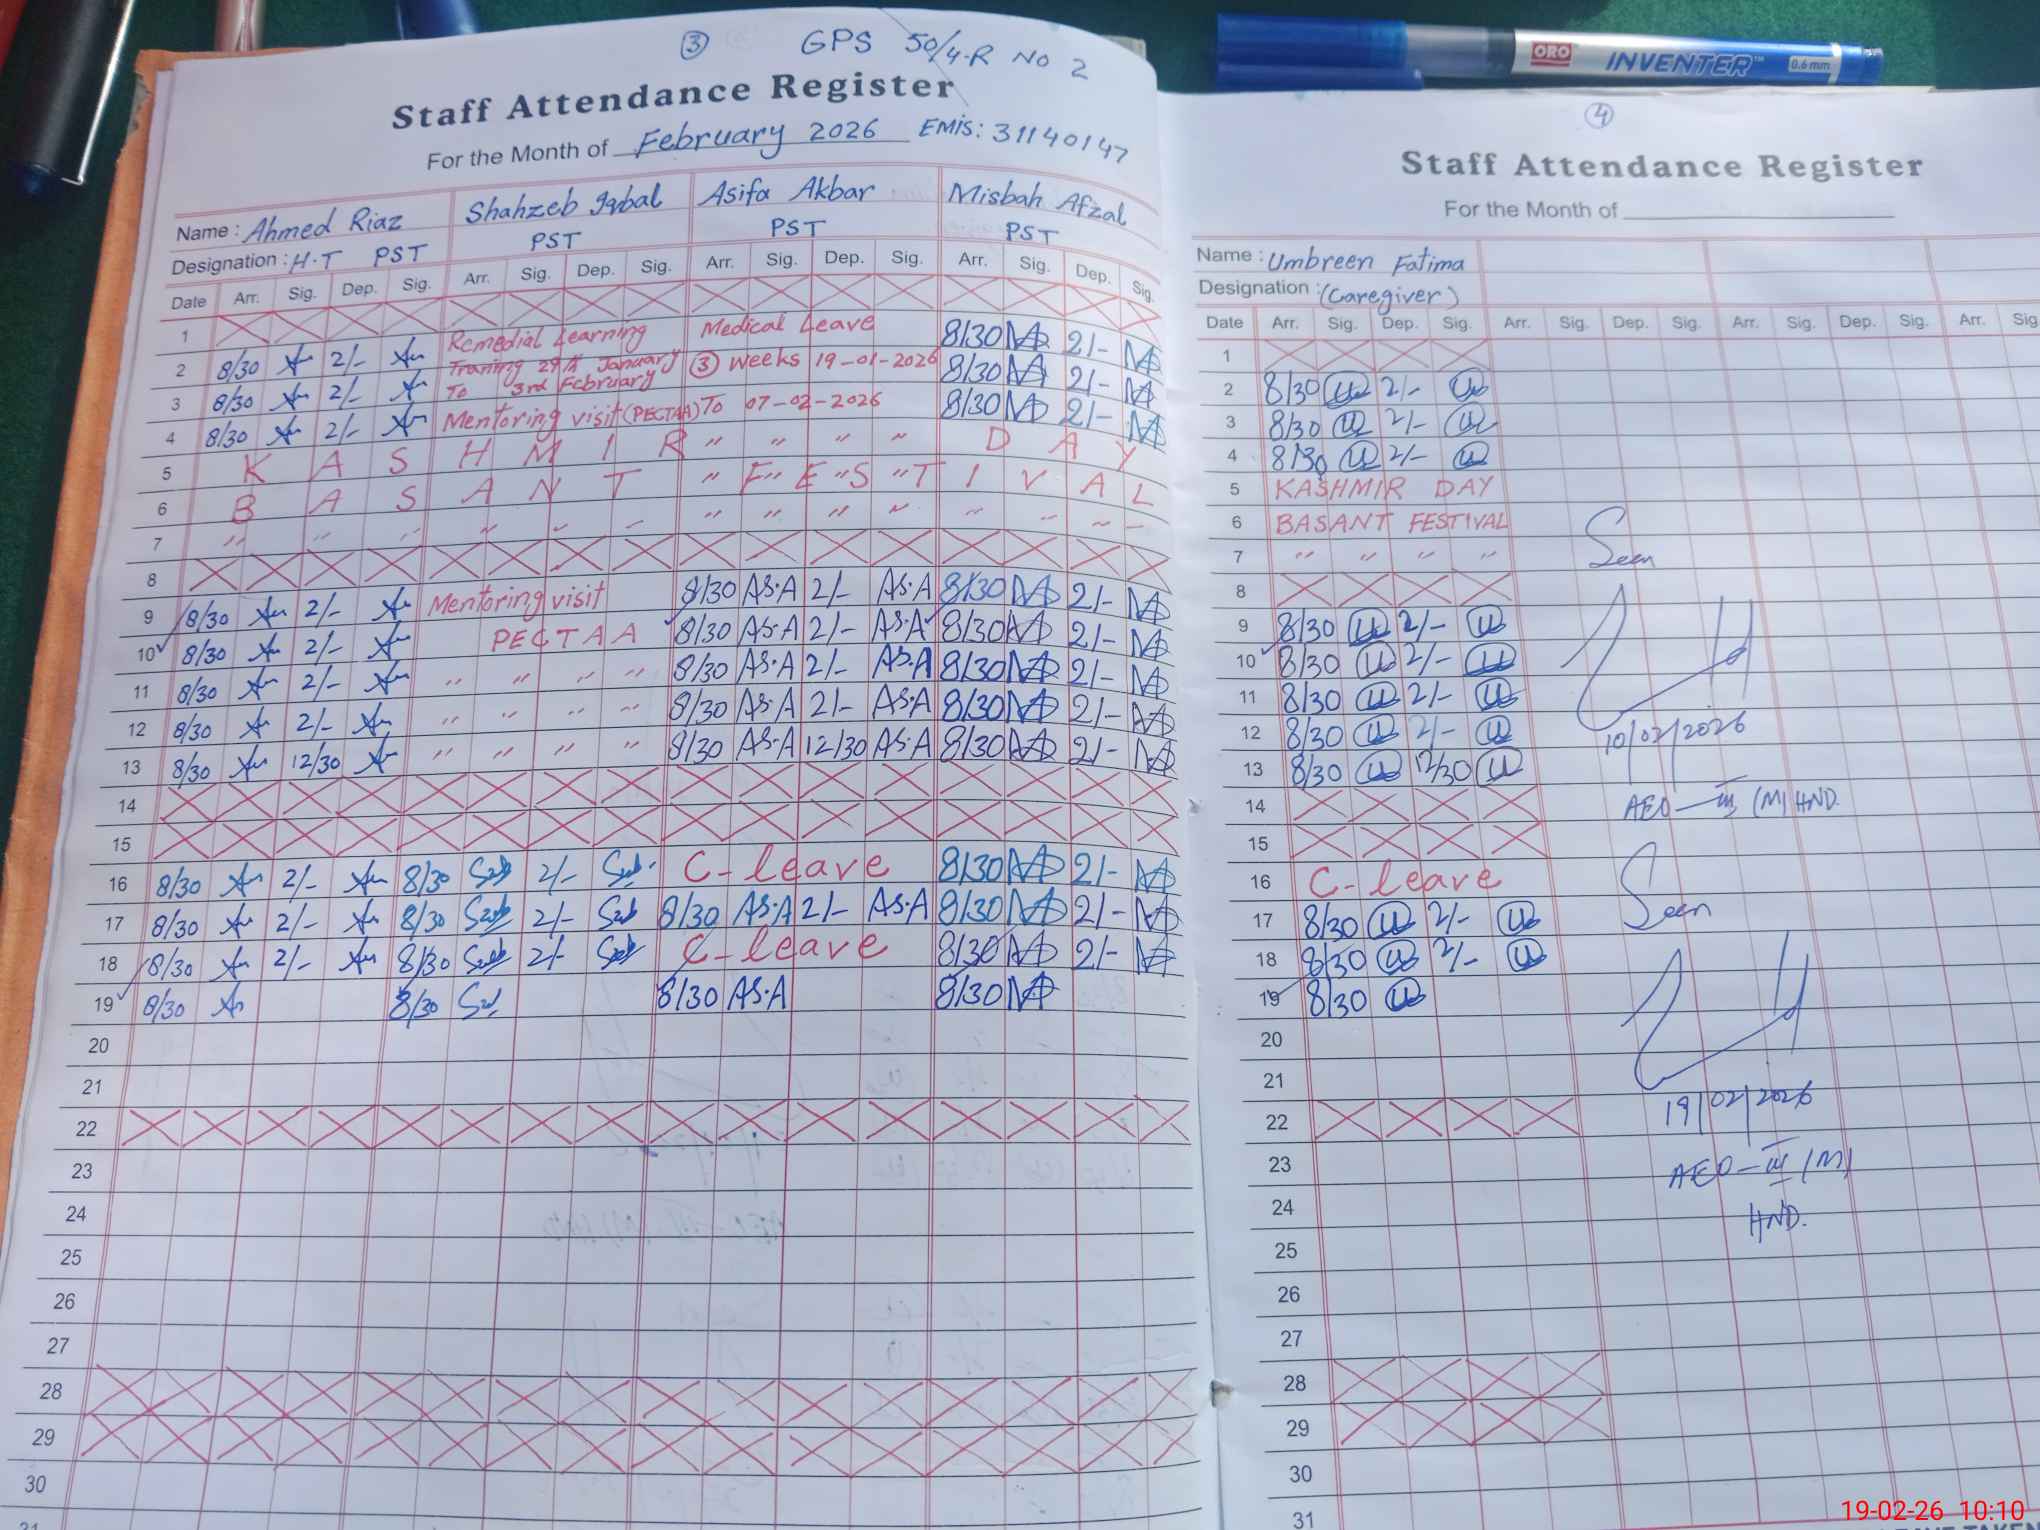 ORO INVENTER™ 0.6 mm
3 GPS 50/4-R No 2
Staff Attendance Register
For the Month of February 2026 EMIS: 31140147
Name : Ahmed Riaz Shahzeb Iqbal Asifa Akbar Misbah Afzal
Designation : H.T PST PST PST PST
Date Arr. Sig. Dep. Sig. Arr. Sig. Dep. Sig. Arr. Sig. Dep. Sig. Arr. Sig. Dep. Sig.
1
2 8/30 2/- Remedial Learning Medical Leave 8/30 2/-
3 8/30 2/- Traning 29th January To 3rd February 3 Weeks 19-01-2026 8/30 2/-
4 8/30 2/- Mentoring visit (PECTAA) To 07-02-2026 8/30 2/-
5 KASHMIR " " " " DAY
6 BASANT " F " E " S " TIVAL
7 " " " " " " " " " " " " " "
8
9 8/30 2/- Mentoring visit 8/30 AS.A 2/- AS.A 8/30 2/-
10 8/30 2/- PECTAA 8/30 AS.A 2/- AS.A 8/30 2/-
11 8/30 2/- " " " " 8/30 AS.A 2/- AS.A 8/30 2/-
12 8/30 2/- " " " " 8/30 AS.A 2/- AS.A 8/30 2/-
13 8/30 12/30 " " " " 8/30 AS.A 12/30 AS.A 8/30 2/-
14
15
16 8/30 2/- 8/30 2/- C-leave 8/30 2/-
17 8/30 2/- 8/30 2/- 8/30 AS.A 2/- AS.A 8/30 2/-
18 8/30 2/- 8/30 2/- C-leave 8/30 2/-
19 8/30 8/30 8/30 AS.A 8/30
20
21
22
23
24
25
26
27
28
29
30
31
4
Staff Attendance Register
For the Month of
Name : Umbreen Fatima
Designation : (Caregiver)
Date Arr. Sig. Dep. Sig. Arr. Sig. Dep. Sig. Arr. Sig. Dep. Sig. Arr. Sig
1
2 8/30 2/-
3 8/30 2/-
4 8/30 2/-
5 KASHMIR DAY
6 BASANT FESTIVAL
7 " " " " Seen
8
9 8/30 2/-
10 8/30 2/-
11 8/30 2/-
12 8/30 2/- 10/02/2026
13 8/30 12/30
14 AEO-III (M) HND.
15
16 C-leave
17 8/30 2/- Seen
18 8/30 2/-
19 8/30
20
21
22 19/02/2026
23 AEO-III (M)
24 HND.
25
26
27
28
29
30
31
19-02-26 10:10